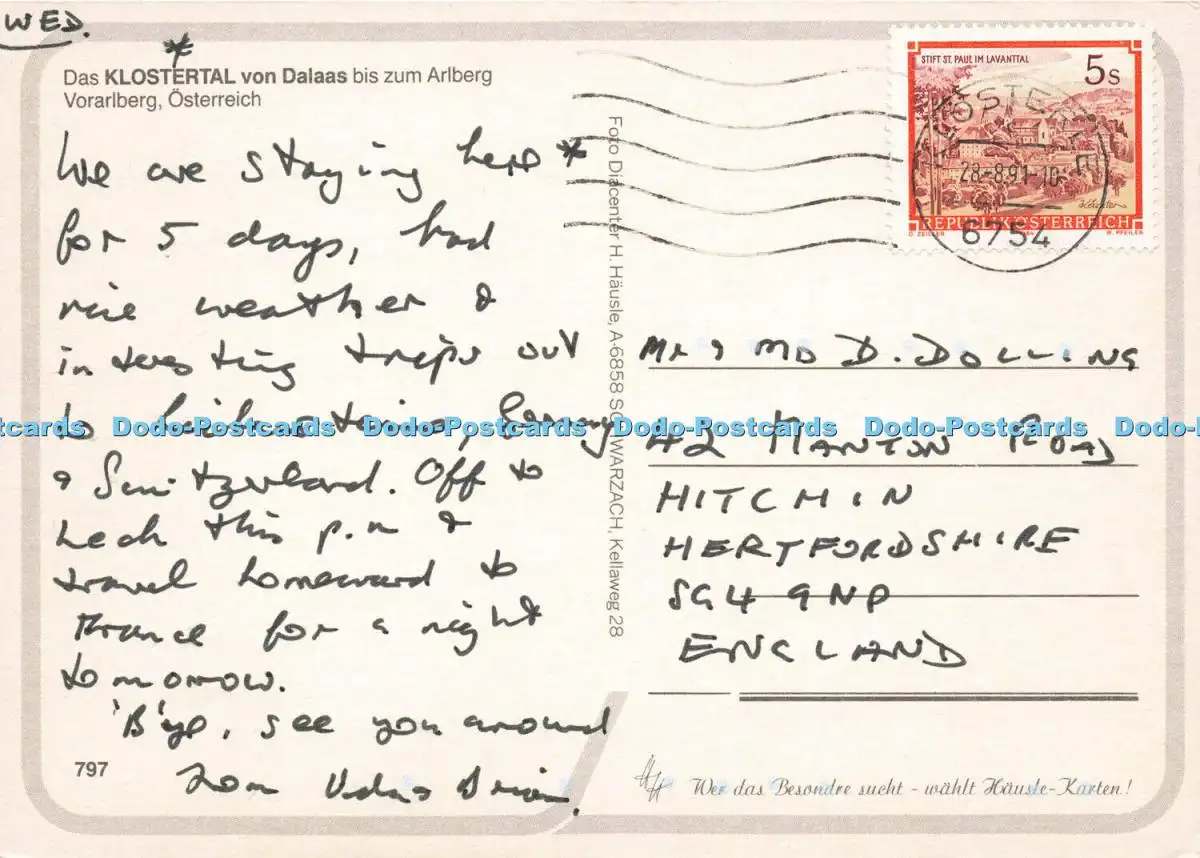 WED.
*
Das KLOSTERTAL von Dalaas bis zum Arlberg
Vorarlberg, Österreich
We are staying here *
for 5 days, had
nice weather &
interesting trips out
to Lichenstein, Germany
& Switzerland. Off to
Lech this p.m &
travel homeward to
France for a night
tomorrow.
'B'ye, see you around
from Brian.
797
Foto Diacenter H. Häusle, A-6858 SCHWARZACH, Kellaweg 28
STIFT ST. PAUL IM LAVANTTAL
5s
REPUBLIK ÖSTERREICH
O. ZEILLER
1985
W. PFEILER
KLÖSTERLE
28.-8.91-10
6754
Mr & Mrs D. DOLLING
42 MANTON ROAD
HITCHIN
HERTFORDSHIRE
SG4 9NP
ENGLAND
HH Wer das Besondre sucht - wählt Häusle-Karten!
Dodo-Postcards Dodo-Postcards Dodo-Postcards Dodo-Postcards